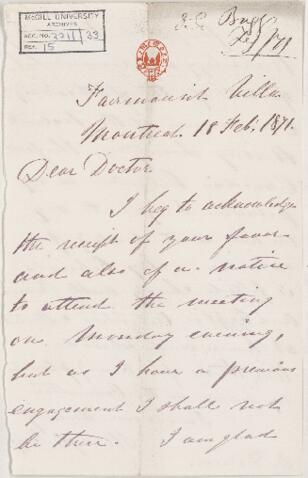 McGILL UNIVERSITY
ARCHIVES
ACC. NO. 2211/33
REF. 15
Feb/71
Fairmount Villa
Montreal 18 Feb, 1871.
Dear Doctor
I beg to acknowledge
the receipt of your favor
and also of a notice
to attend the meeting
on Monday evening,
but as I have a previous
engagement I shall not
be there. I am glad